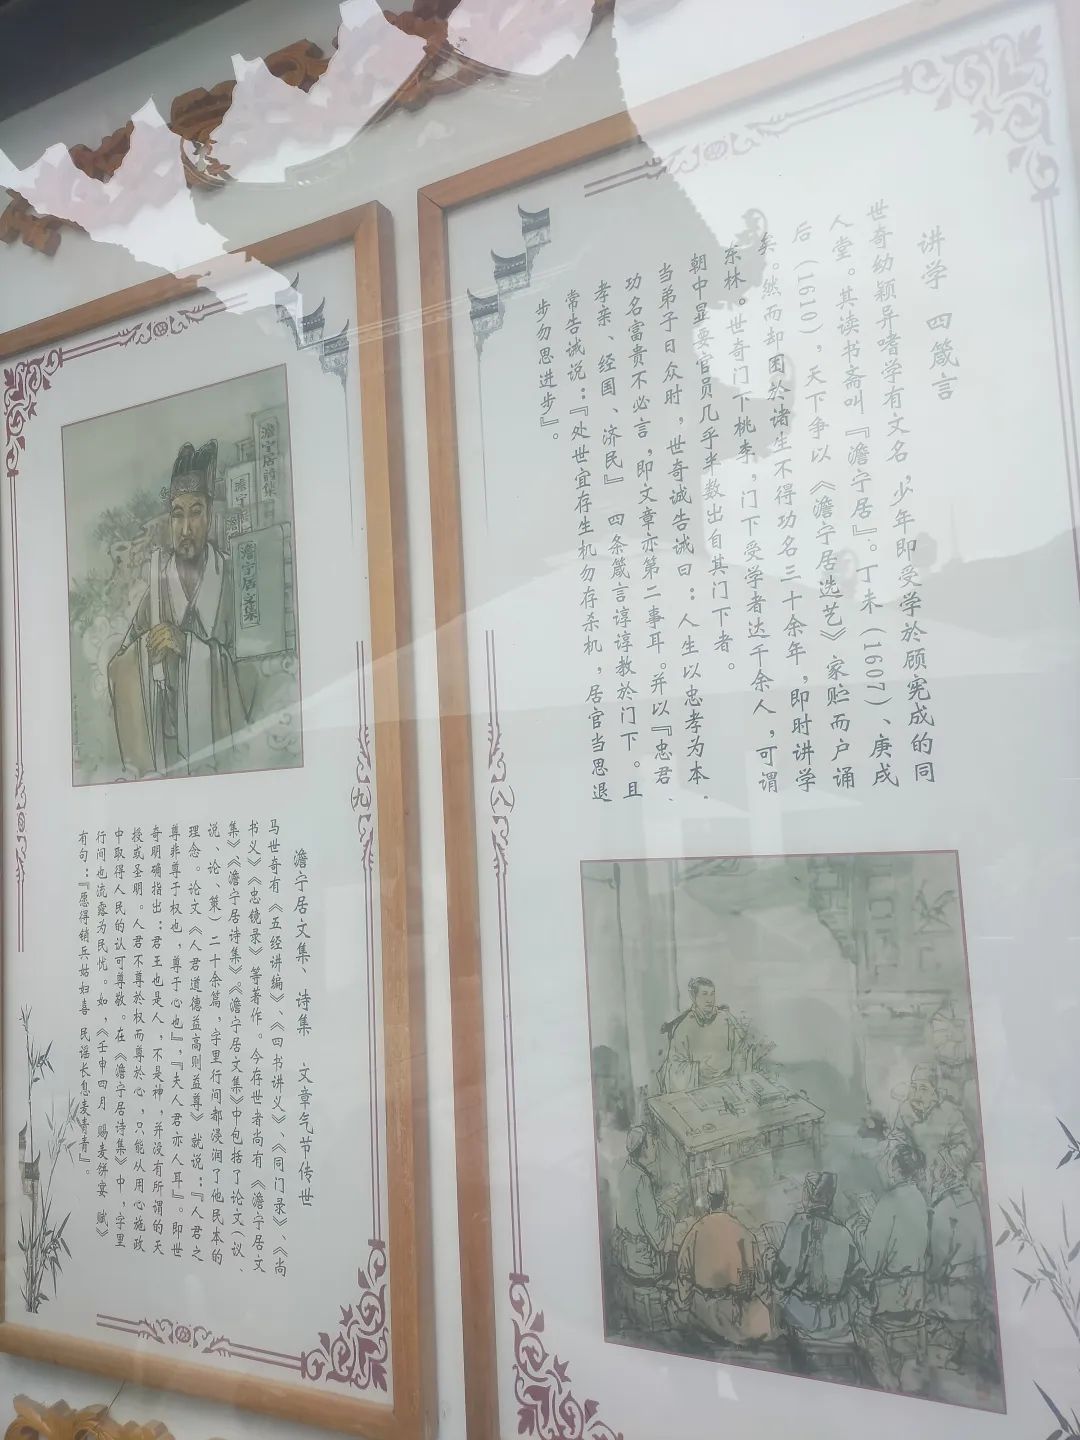 讲学 四箴言
世奇幼颖异嗜学有文名，少年即受学於顾宪成的同
人堂。其读书斋叫『澹宁居』。丁未（1607）、庚戌
后（1610），天下争以《澹宁居选艺》家贮而户诵
矣。然而却困於诸生不得功名三十余年，即时讲学
东林。世奇门下桃李，门下受学者达千余人，可谓
朝中显要官员几乎半数出自其门下者。
当弟子日众时，世奇诚告诫曰：人生以忠孝为本，
功名富贵不必言，即文章亦第二事耳。并以『忠君、
孝亲、经国、济民』 四条箴言谆谆教於门下。且
常告诫说：『处世宜存生机勿存杀机，居官当思退
步勿思进步』。
（八）
澹宁居诗集
澹宁
澹宁居文集
（九）
澹宁居文集、诗集 文章气节传世
马世奇有《五经讲编》、《四书讲义》、《同门录》、《尚
书义》《忠镜录》等著作。今存世者尚有《澹宁居文
集》《澹宁居诗集》。《澹宁居文集》中包括了论文（议、
说、论、策）二十余篇，字里行间都浸润了他民本的
理念。论文《人君道德益高则益尊》就说：『人君之
尊非尊于权也，尊于心也』，『夫人君亦人耳』。即世
奇明确指出：君王也是人，不是神，并没有所谓的天
授或圣明。人君不尊於权而尊於心，只能从用心施政
中取得人民的认可尊敬。在《澹宁居诗集》中，字里
行间也流露为民忧。如，《壬申四月 赐麦饼宴 赋》
有句：『愿得销兵姑妇喜 民谣长息麦青青』。